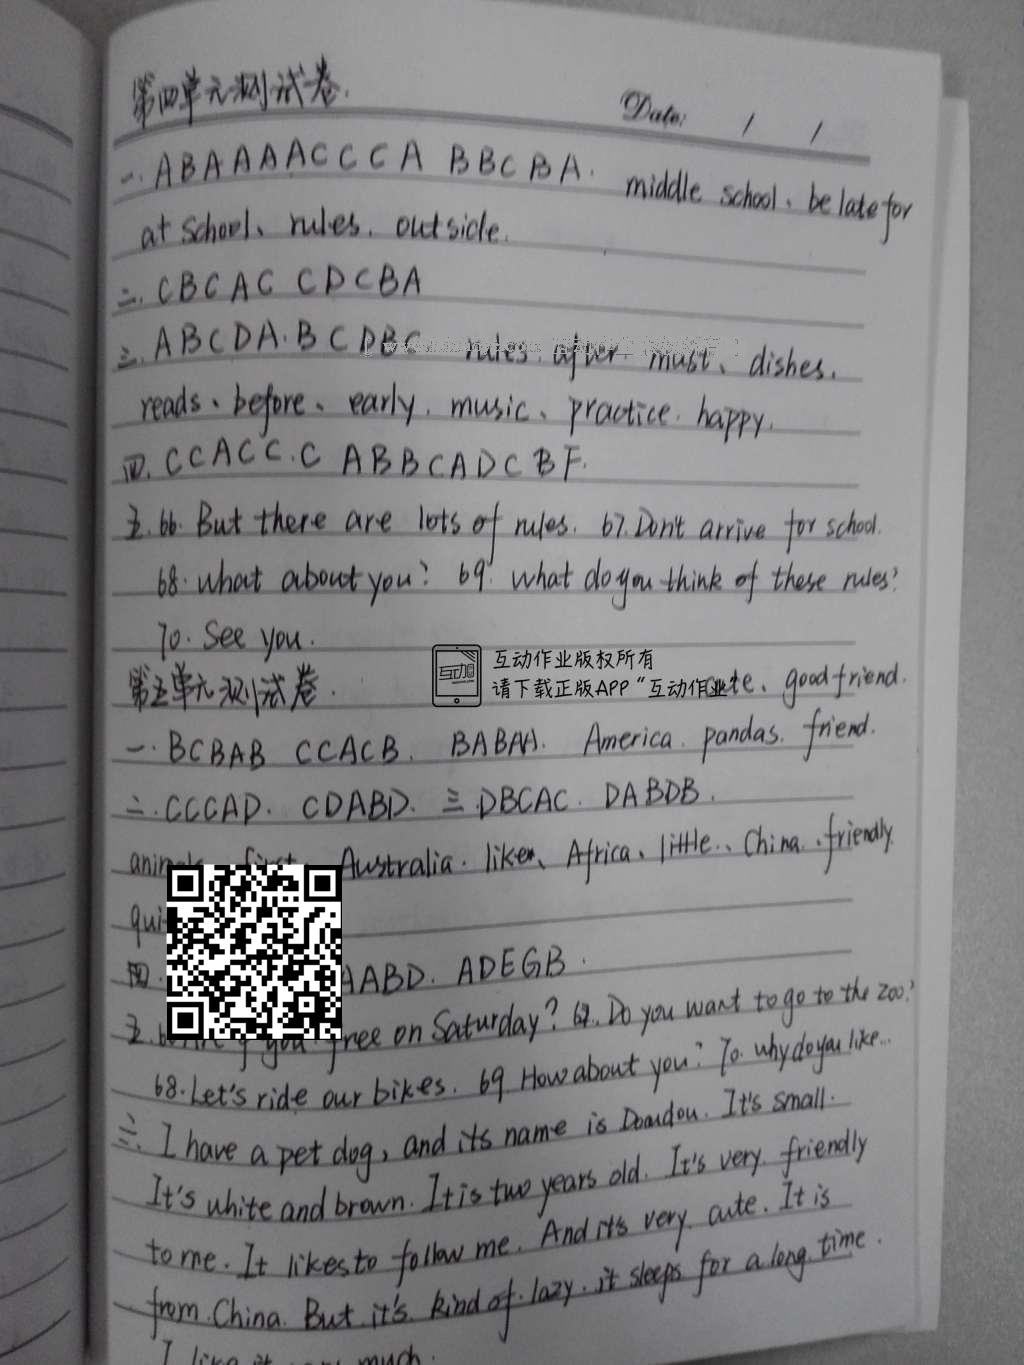 第四单元测试卷.
Date: / /
一. ABAAAACCCA BBCBA. middle school、be late for
at school、rules. outside.
二. CBCAC CDCBA
三. ABCDA. BCDBC rules. after must、dishes.
reads、before、early. music、practice. happy.
四. CCACC. C ABBCADCBF.
五. 66. But there are lots of rules. 67. Don't arrive for school.
68. What about you? 69. what do you think of these rules?
70. See you.
互动作业版权所有
请下载正版APP“互动作业”
第五单元测试卷. 、good friend.
一. BCBAB CCACB. BABAA. America. pandas. friend.
二. CCCAD. CDABD. 三. DBCAC. DABDB.
Australia. like、Africa、little、China、friendly.
四. AABD. ADEGB.
五. you free on Saturday? 67. Do you want to go to the zoo?
68. Let's ride our bikes. 69. How about you? 70. why do you like...
三. I have a pet dog, and its name is Doudou. It's small.
It's white and brown. It is two years old. It's very friendly
to me. It likes to follow me. And it's very cute. It is
from China. But it's kind of lazy. it sleeps for a long time.
I like it very much.